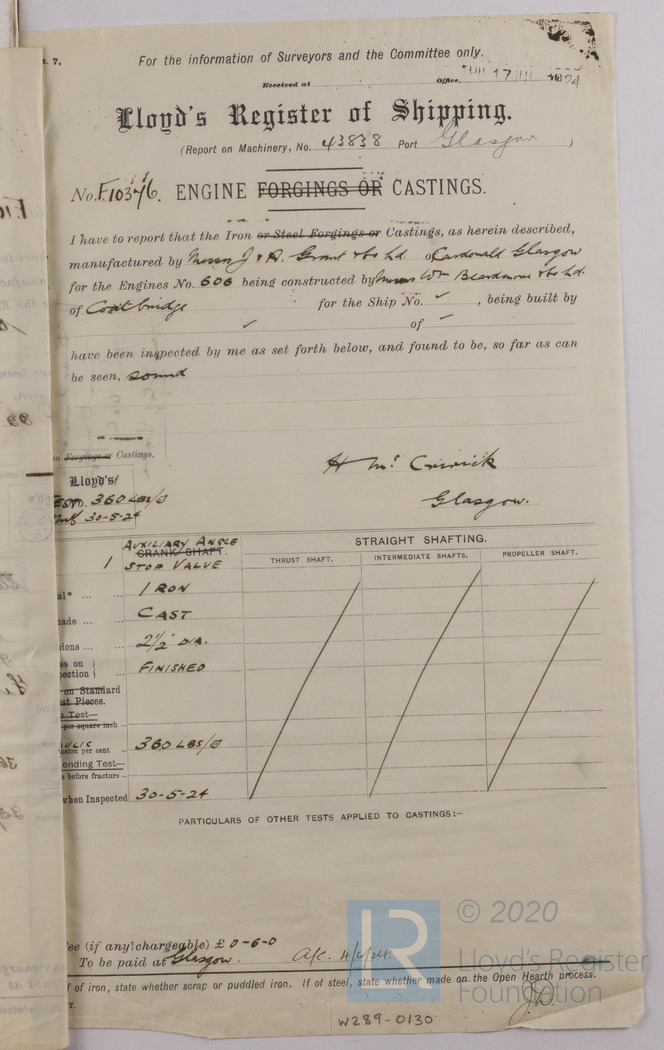 t. 7.
For the information of Surveyors and the Committee only.
Received at Office, 17 1924
Lloyd's Register of Shipping.
(Report on Machinery, No. 43838 Port Glasgow )
No. F10376. ENGINE FORGINGS OR CASTINGS.
I have to report that the Iron or Steel Forgings or Castings, as herein described,
manufactured by Messrs J & A. Grant & Co Ld. of Cardonald Glasgow
for the Engines No. 606 being constructed by Messrs Wm Beardmore & Co Ld.
of Coatbridge for the Ship No. ✓ , being built by
✓ of ✓
have been inspected by me as set forth below, and found to be, so far as can
be seen, sound
Forgings or Castings.
Lloyd's
360 LBS/□
30-5-24
Glasgow.
1 AUXILIARY ANGLE
CRANK SHAFT.
STOP VALVE
STRAIGHT SHAFTING.
THRUST SHAFT. INTERMEDIATE SHAFTS. PROPELLER SHAFT.
al* ... ... IRON
ade ... ... CAST
ions ... ... 2½" DIA.
ss on
ection ... FINISHED
on Standard
at Pieces.
Test—
per square inch ...
ULIC
nsion per cent 360 LBS/□
ending Test—
e before fracture ...
when Inspected 30-5-24
PARTICULARS OF OTHER TESTS APPLIED TO CASTINGS:—
ee (if any chargeable) £ 0-6-0
To be paid at Glasgow. A/c. 4/6/24.
f of iron, state whether scrap or puddled iron. If of steel, state whether made on the Open Hearth process.
W289-0130
LR
© 2020
Lloyd's Register
Foundation